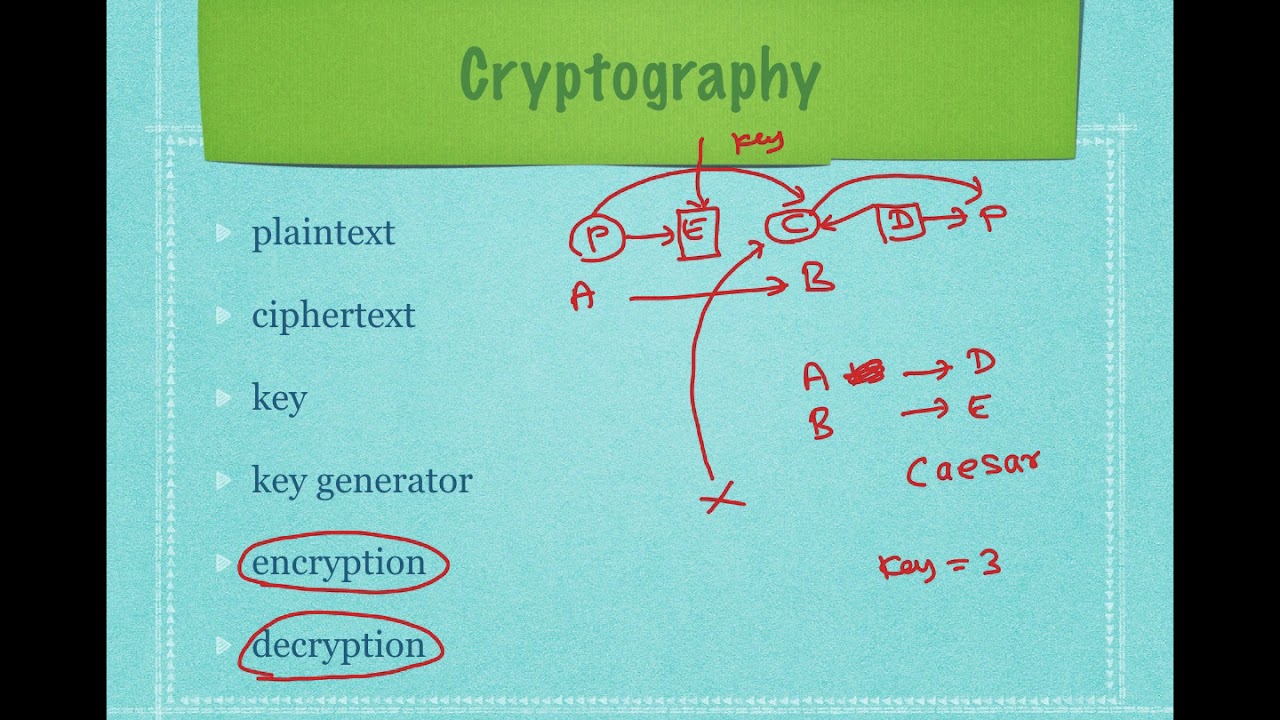 Cryptography
key
plaintext
P E C D P
A B
ciphertext
A → D
key
B → E
Caesar
key generator
X
encryption
key = 3
decryption